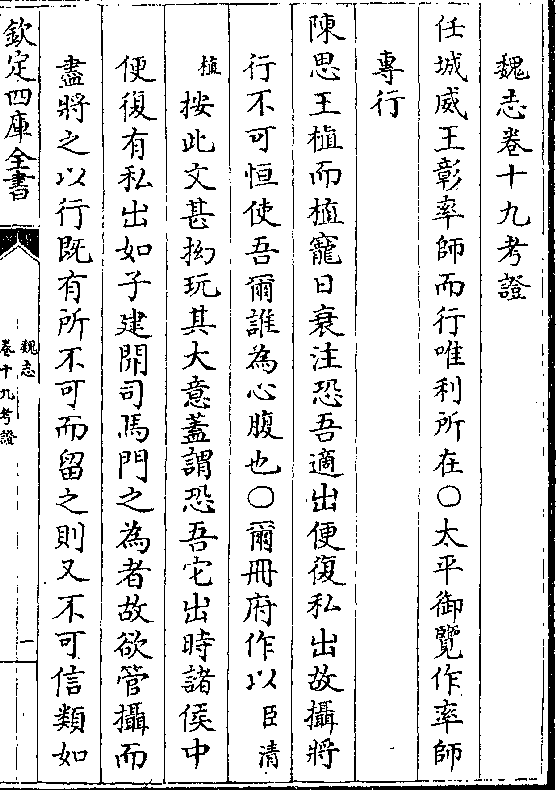 魏志卷十九考證
任城威王彰率師而行唯利所在○太平御覽作率師
專行
陳思王植而植寵日衰注恐吾適出便復私出故攝將
行不可恒使吾爾誰為心腹也○爾冊府作以臣清
植按此文甚拗玩其大意蓋謂恐吾它出時諸侯中
便復有私出如子建開司馬門之為者故欲管攝而
盡將之以行既有所不可而留之則又不可信類如
欽定四庫全書
魏志
卷十九考證
一